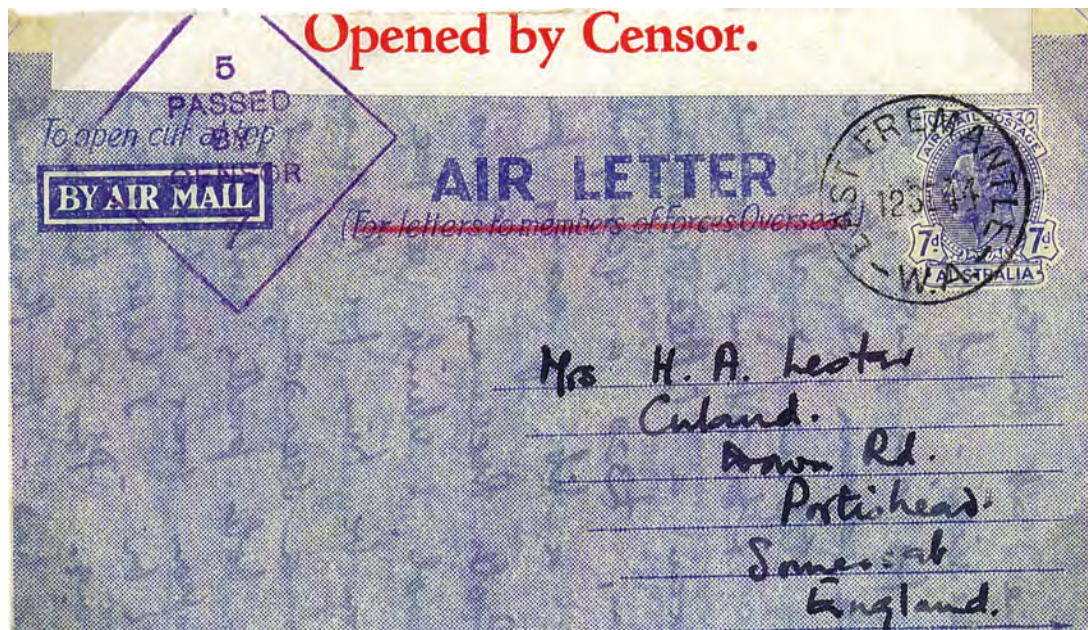 Opened by Censor.
5
PASSED
BY
CENSOR
To open cut at top
BY AIR MAIL
AIR LETTER
(For letters to members of Forces Overseas)
EAST FREMANTLE
W.A.
AIR MAIL POSTAGE
7d 7d
AUSTRALIA
Mrs H. A. Lester
Down Rd.
Portishead.
Somerset
England.